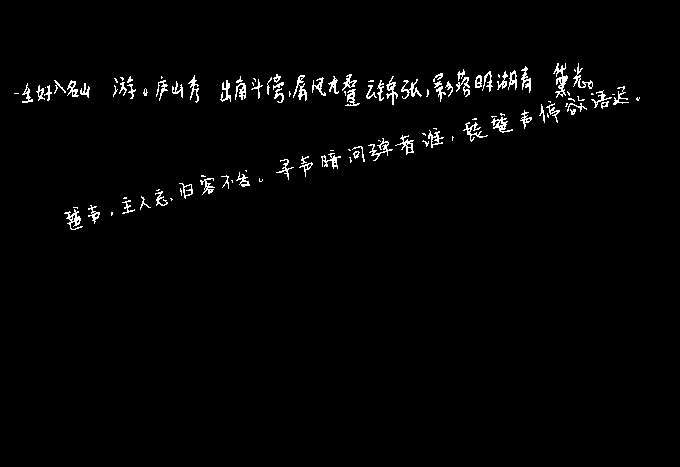 一生好入名山游。庐山秀出南斗傍,屏风九叠云锦张,影落明湖青黛光。
琶声,主人忘,归客不发。寻声暗问弹者谁,琵琶声停欲语迟。